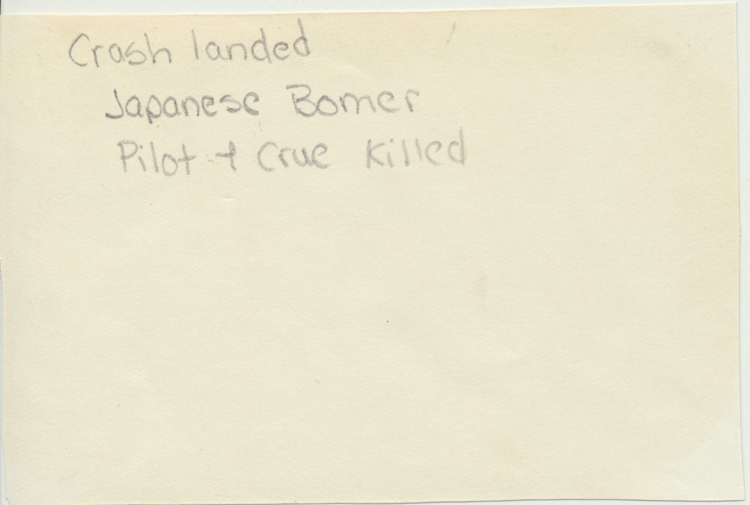 Crash landed
Japanese Bomer
Pilot + Crue Killed